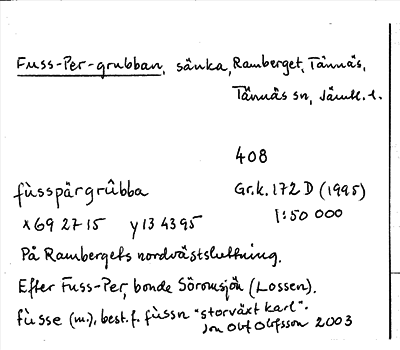 Fuss-Per-grubban, sänka, Ramberget, Tännäs,
Tännäs sn, Jämtl. l.
408
fùsspärgrûbba Gr.k. 172 D (1995)
x 69 27 15 y 13 43 95 1:50 000
På Rambergets nordvästsluttning.
Efter Fuss-Per, bonde Söromsjön (Lossen).
fùsse (m.), best. f. fùssn "storväxt karl".
Jon Olof Olofsson 2003